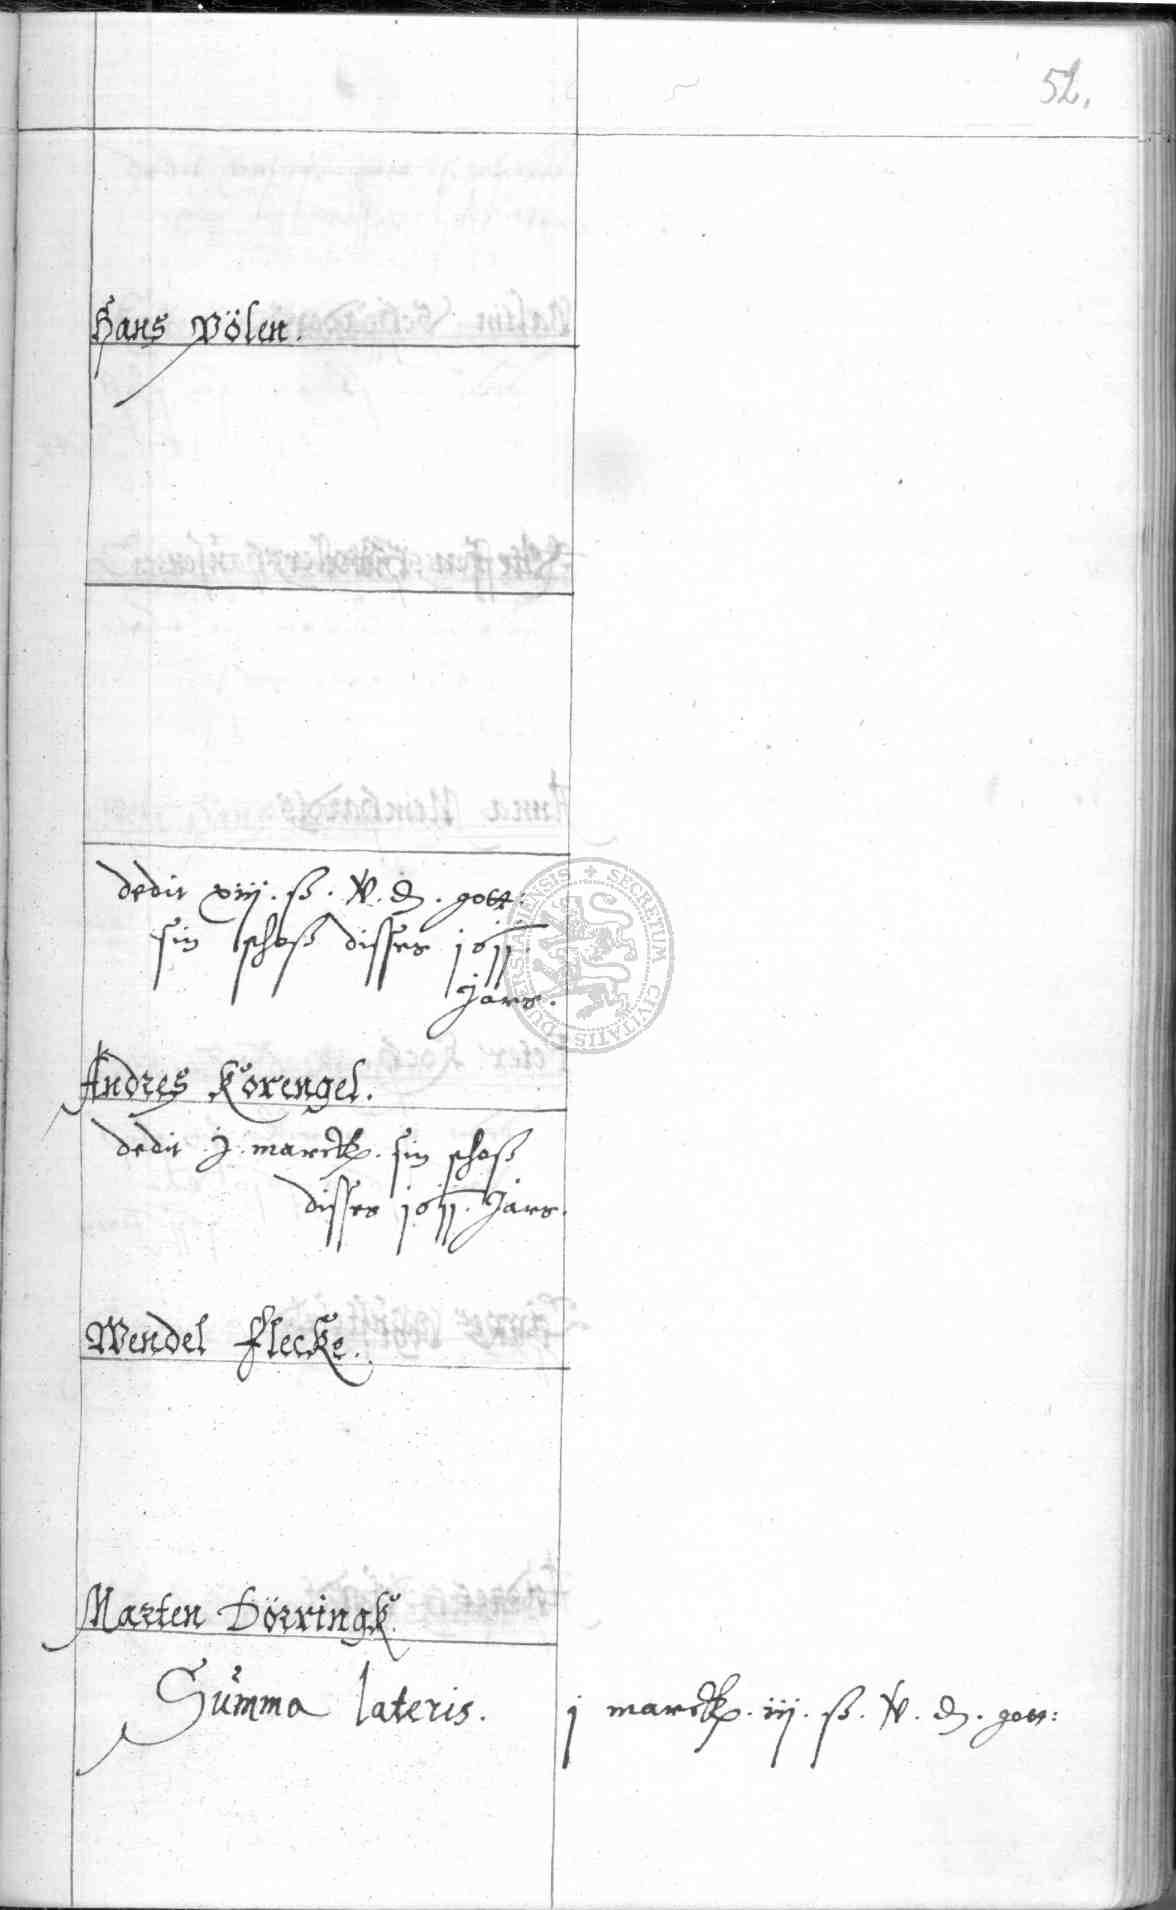 52.
Hans Völen.
dedit xiij. ß. V. d. gott:
sin schoß disses 1611.
Jars.
Andres Korengel.
dedit j. marck. sin schoß
disses 1611. Jars.
Wendel Flecke.
Marten Dörringk.
Summa lateris. j marck. iij. ß. V. d. gott:
SECRETUM CIVITATIS DUDERSTADIENSIS